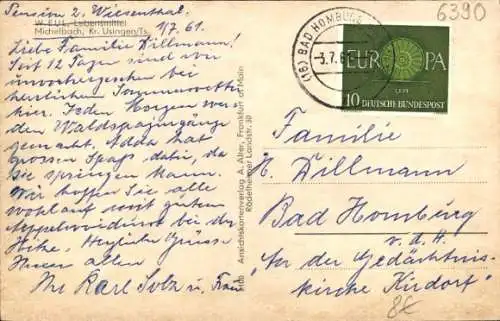 Pension z. Wiesenthal,
W. EUL, Lebensmittel
Michelbach, Kr. Usingen/Ts.
1/7. 61.
Liebe Familie Dillmann!
Seit 12 Tagen sind wir
unvorhergesehen bei
herrlichem Sommerwetter
hier. Jeden Morgen werden
den Waldspaziergänge
gemacht. Adda hat
grossen Spaß dabei, da
sie springen kann.
Wir hoffen Sie alle
wohlauf mit gutem
bei der
Hitze. Herzliche Grüsse
Ihnen allen
Ihr Karl Solz u. Frau
5108 Ansichtskartenverlag A. Alter, Frankfurt a. Main
Rödelheimer Landstr. 30
6390
(16) BAD HOMBURG
-3.7.61
EUROPA
CEPT
10 DEUTSCHE BUNDESPOST
Familie
H. Dillmann
Bad Homburg
v. d. H.
"An der Gedächtnis-
kirche Kirdorf"
8€